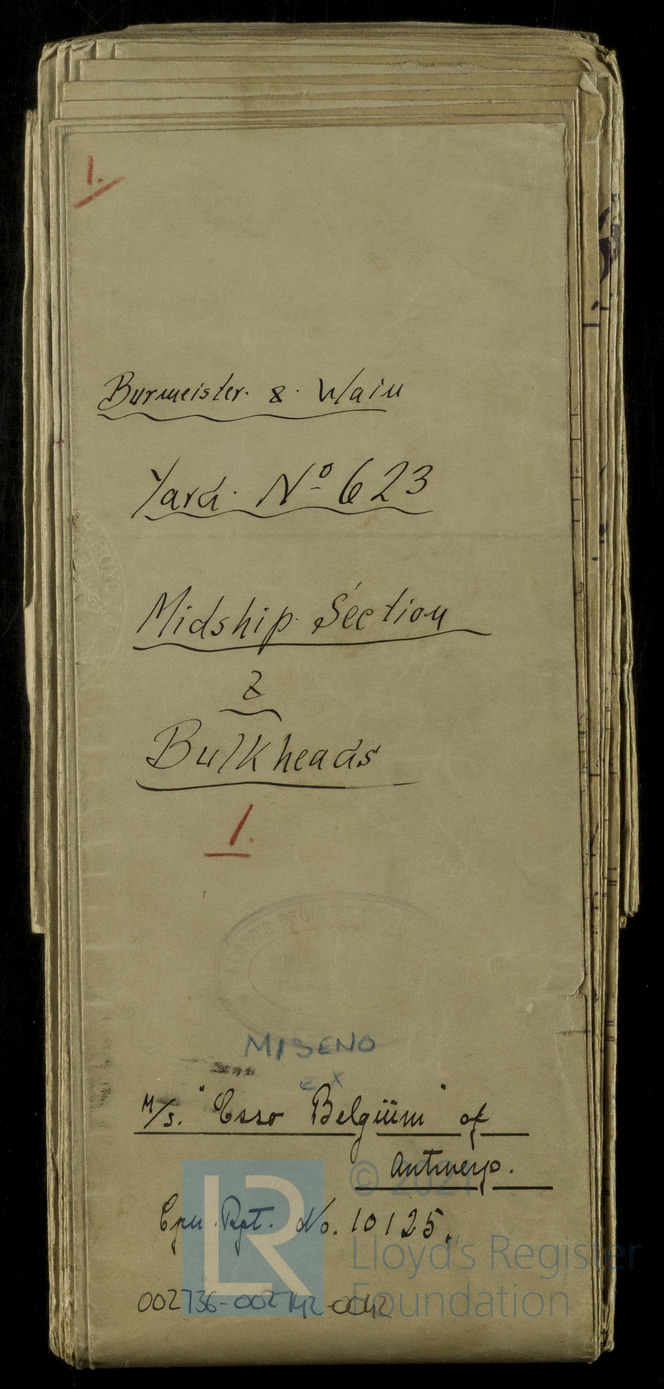 1.
Burmeister & Wain
Yard Nº 623
Midship Section
&
Bulkheads
1.
MISENO
ex
M/S. "Esso Belgiüm" of
Antwerp.
© 2021
Cpn. Rpt. No. 10125.
LR
Lloyd's Register
Foundation
002736-002742-0042